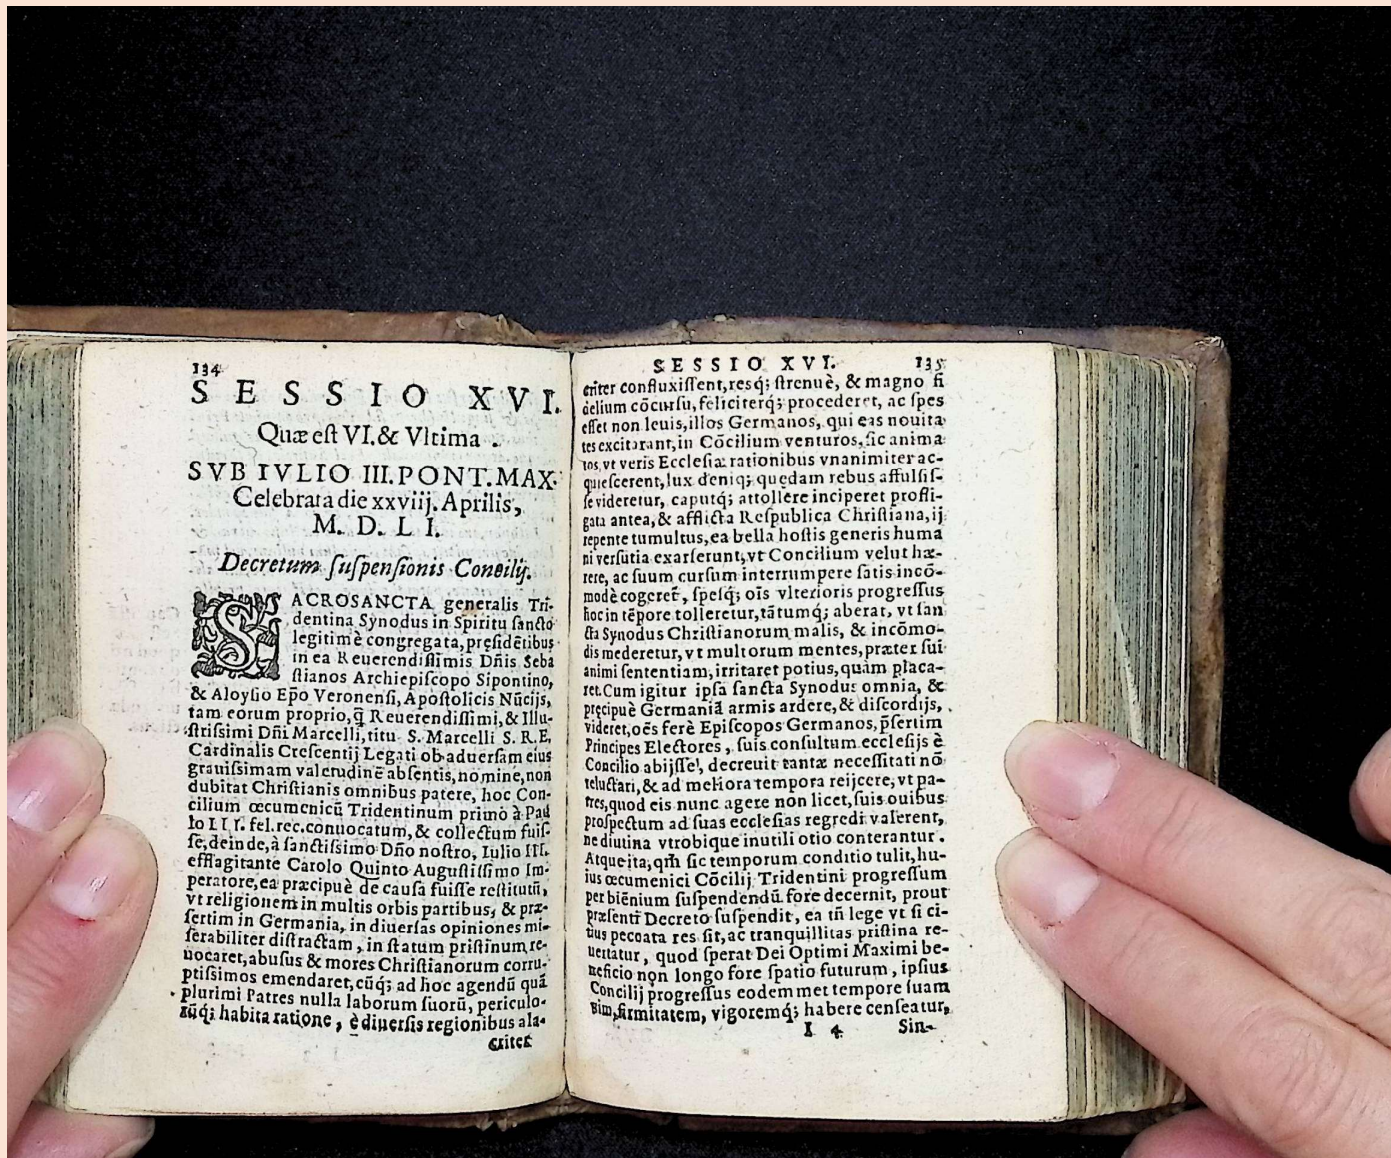 134
SESSIO XVI.
Quæ eſt VI. & Vltima .
SVB IVLIO III. PONT. MAX.
Celebrata die xxviij. Aprilis,
M. D. L I.
Decretum ſuſpenſionis Concilij.
SACROSANCTA generalis Tri-
dentina Synodus in Spiritu ſancto
legitimè congregata, pręſidētibus
in ea Reuerendiſſimis Dñis Seba
ſtianos Archiepiſcopo Sipontino,
& Aloyſio Ep̄o Veronenſi, Apoſtolicis Nūcijs,
tam eorum proprio, q̄ Reuerendiſſimi, & Illu-
ſtriſſimi Dñi Marcelli, titu. S. Marcelli S. R. E.
Cardinalis Creſcentij Legati ob aduerſam eius
grauiſsimam valetudinē abſentis, nomine, non
dubitat Chriſtianis omnibus patere, hoc Con-
cilium œcumenicū Tridentinum primò à Pau
lo III. fel. rec. conuocatum, & collectum fuiſ-
ſe, deinde, à ſanctiſsimo Dño noſtro, Iulio III.
efflagitante Carolo Quinto Auguſtiſſimo Im-
peratore, ea præcipuè de cauſa fuiſſe reſtitutū,
vt religionem in multis orbis partibus, & præ-
ſertim in Germania, in diuerſas opiniones mi-
ſerabiliter diſtractam, in ſtatum priſtinum re-
uocaret, abuſus & mores Chriſtianorum corru-
ptiſsimos emendaret, cūq; ad hoc agendū quā
plurimi Patres nulla laborum ſuorū, periculo-
rūq; habita ratione, è diuerſis regionibus ala-
criter
SESSIO XVI. 135
criter confluxiſſent, resq́; ſtrenuè, & magno fi
delium cōcurſu, feliciterq́; procederet, ac ſpes
eſſet non leuis, illos Germanos, qui eas nouita
tes excitarant, in Cōcilium venturos, ſic anima
tos, vt veris Eccleſiæ rationibus vnanimiter ac-
quieſcerent, lux deniq; quędam rebus affulſiſ-
ſe videretur, caputq́; attollere inciperet profli-
gata antea, & afflicta Reſpublica Chriſtiana, ij
repente tumultus, ea bella hoſtis generis huma
ni verſutia exarſerunt, vt Concilium velut hæ-
rere, ac ſuum curſum interrumpere ſatis incō-
modè cogeret̄, ſpeſq́; oīs vlterioris progreſſus
hoc in tēpore tolleretur, tātumq́; aberat, vt ſan
cta Synodus Chriſtianorum malis, & incōmo-
dis mederetur, vt multorum mentes, præter ſui
animi ſententiam, irritaret potius, quàm placa-
ret. Cum igitur ipſa ſancta Synodus omnia, &
pręcipuè Germaniā armis ardere, & diſcordijs,
videret, oēs ferè Epiſcopos Germanos, p̄ſertim
Principes Electores, ſuis conſultum eccleſijs è
Concilio abijſſe, decreuit tantæ neceſſitati nō
reluctari, & ad meliora tempora reijcere, vt pa-
tres, quod eis nunc agere non licet, ſuis ouibus
proſpectum ad ſuas eccleſias regredi valerent,
ne diutina vtrobique inutili otio conterantur.
Atque ita, qm̄ ſic temporum conditio tulit, hu-
ius œcumenici Cōcilij Tridentini progreſſum
per biēnium ſuſpendendū fore decernit, prout
præſenti Decreto ſuſpendit, ea tñ lege vt ſi ci-
tius pecata res ſit, ac tranquillitas priſtina re-
uertatur, quod ſperat Dei Optimi Maximi be-
neficio non longo fore ſpatio futurum, ipſius
Concilij progreſſus eodemmet tempore ſuam
vim, firmitatem, vigoremq́; habere cenſeatur,
I 4 Sin-